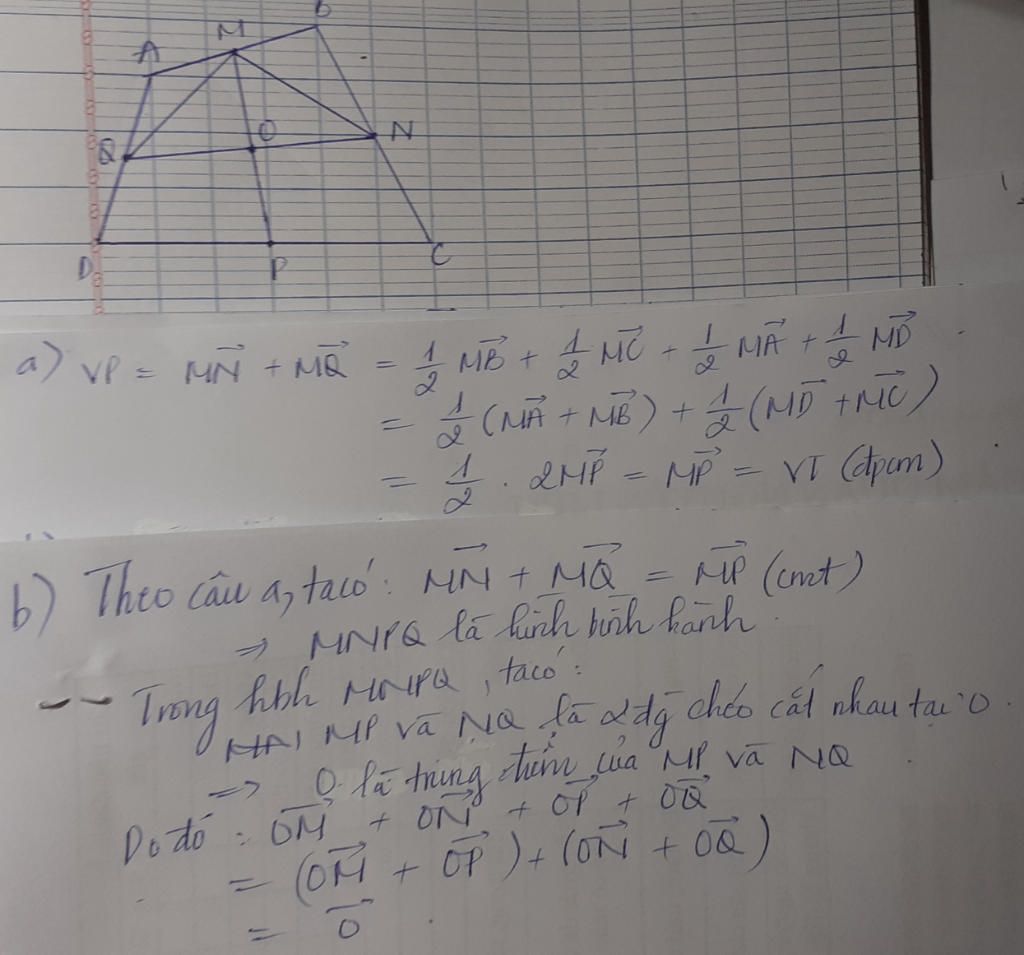 B
M
A
O
N
Q
D
P
C
a) VP = MN⃗ + MQ⃗ = 1/2 MB⃗ + 1/2 MC⃗ + 1/2 MA⃗ + 1/2 MD⃗
= 1/2 (MA⃗ + MB⃗) + 1/2 (MD⃗ + MC⃗)
= 1/2 . 2MP⃗ = MP⃗ = VT (đpcm)
b) Theo câu a, ta có: MN⃗ + MQ⃗ = MP⃗ (cmt)
⇒ MNPQ là hình bình hành.
-- Trong hbh MNPQ, ta có:
MP và NQ là 2 đg chéo cắt nhau tại O.
⇒ O là trung điểm của MP và NQ
Do đó: OM⃗ + ON⃗ + OP⃗ + OQ⃗
= (OM⃗ + OP⃗) + (ON⃗ + OQ⃗)
= 0⃗.